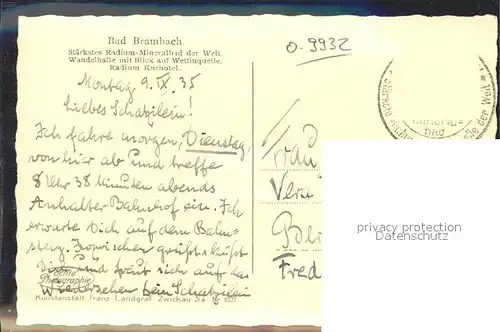 Bad Brambach.
Stärkstes Radium-Mineralbad der Welt.
Wandelhalle mit Blick auf Wettinquelle.
Radium Kurhotel.
0-9932
Montag 9. IX. 35
Liebes Schatzilein!
Ich fahre morgen, Dienstag,
von hier ab und treffe
8 Uhr 38 Minuten abends
Anhalter Bahnhof ein. Ich
erwarte Dich auf dem Bahn-
steig. Inzwischen grüßt + küßt
Dich und freut sich auf das
Wiedersehen Dein Schatzilein
Echte
Photographie
Kunstanstalt Franz Landgraf, Zwickau Sa. Nr.
Frau
Vera
Fred
Mineral-
bad
der Welt
privacy protection
Datenschutz